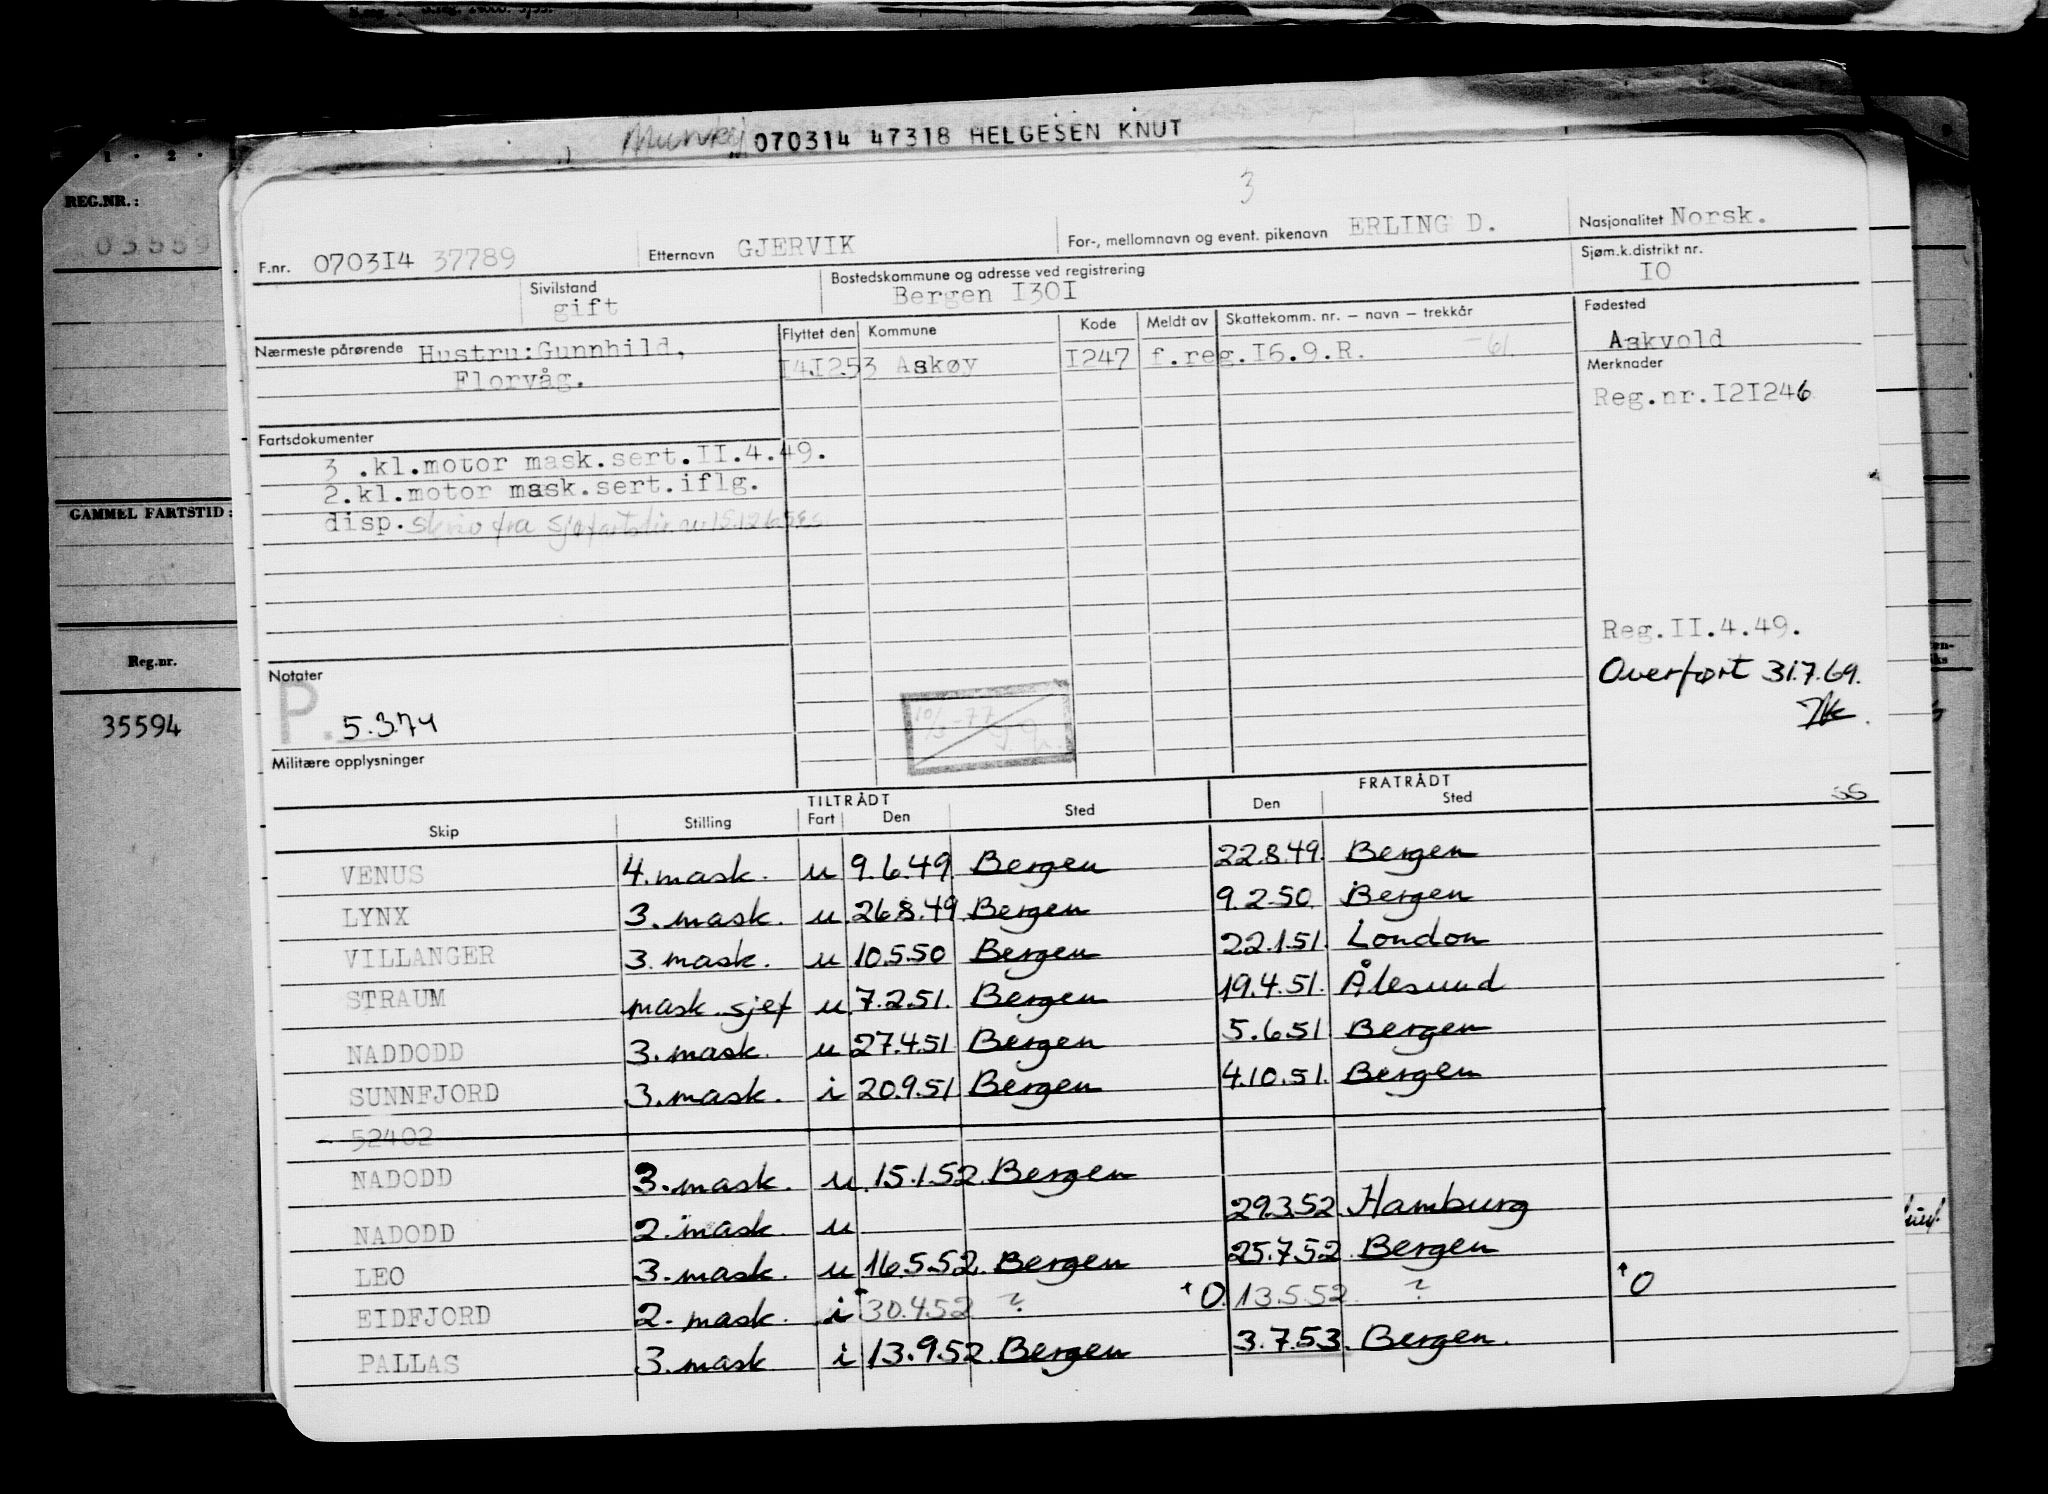 070314 47318 HELGESEN KNUT
3
REG.NR.:
F.nr. 0703I4 37789 Etternavn GJERVIK For-, mellomnavn og event. pikenavn ERLING D. Nasjonalitet Norsk.
Sivilstand gift Bostedskommune og adresse ved registrering Bergen I30I Sjøm.k.distrikt nr. IO
Nærmeste pårørende Hustru:Gunnhild, Flyttet den Kommune Kode Meldt av Skattekomm. nr. – navn – trekkår Fødested
Florvåg. I4.I2.53 Askøy I247 f.reg.I6.9.R. -61. Askvold
Merknader
Reg.nr.I2I246
Fartsdokumenter
3 .kl.motor mask.sert.II.4.49.
2.kl.motor mask.sert.iflg.
disp. skriv fra
GAMMEL FARTSTID:
Reg.II.4.49.
Overført 31.7.69.
Reg.nr.
35594
Notater
P. 5.3.74
Militære opplysninger
TILTRÅDT FRATRÅDT
Skip Stilling Fart Den Sted Den Sted
VENUS 4. mask. u 9.6.49. Bergen 22.8.49. Bergen
LYNX 3. mask. u. 26.8.49. Bergen 9.2.50. Bergen
VILLANGER 3. mask. u 10.5.50 Bergen 22.1.51. London
STRAUM mask. sjef u. 7.2.51. Bergen 19.4.51. Ålesund
NADDODD 3. mask. u 27.4.51 Bergen 5.6.51 Bergen
SUNNFJORD 3. mask. i 20.9.51. Bergen 4.10.51. Bergen
52402
NADODD 3. mask. u. 15.1.52. Bergen
NADODD 2. mask. u 29.3.52. Hamburg
LEO 3. mask. u 16.5.52. Bergen 25.7.52. Bergen
EIDFJORD 2. mask. i 30.4.52 ? ↑O. 13.5.52. ? ↑O
PALLAS 3. mask i 13.9.52. Bergen 3.7.53. Bergen.